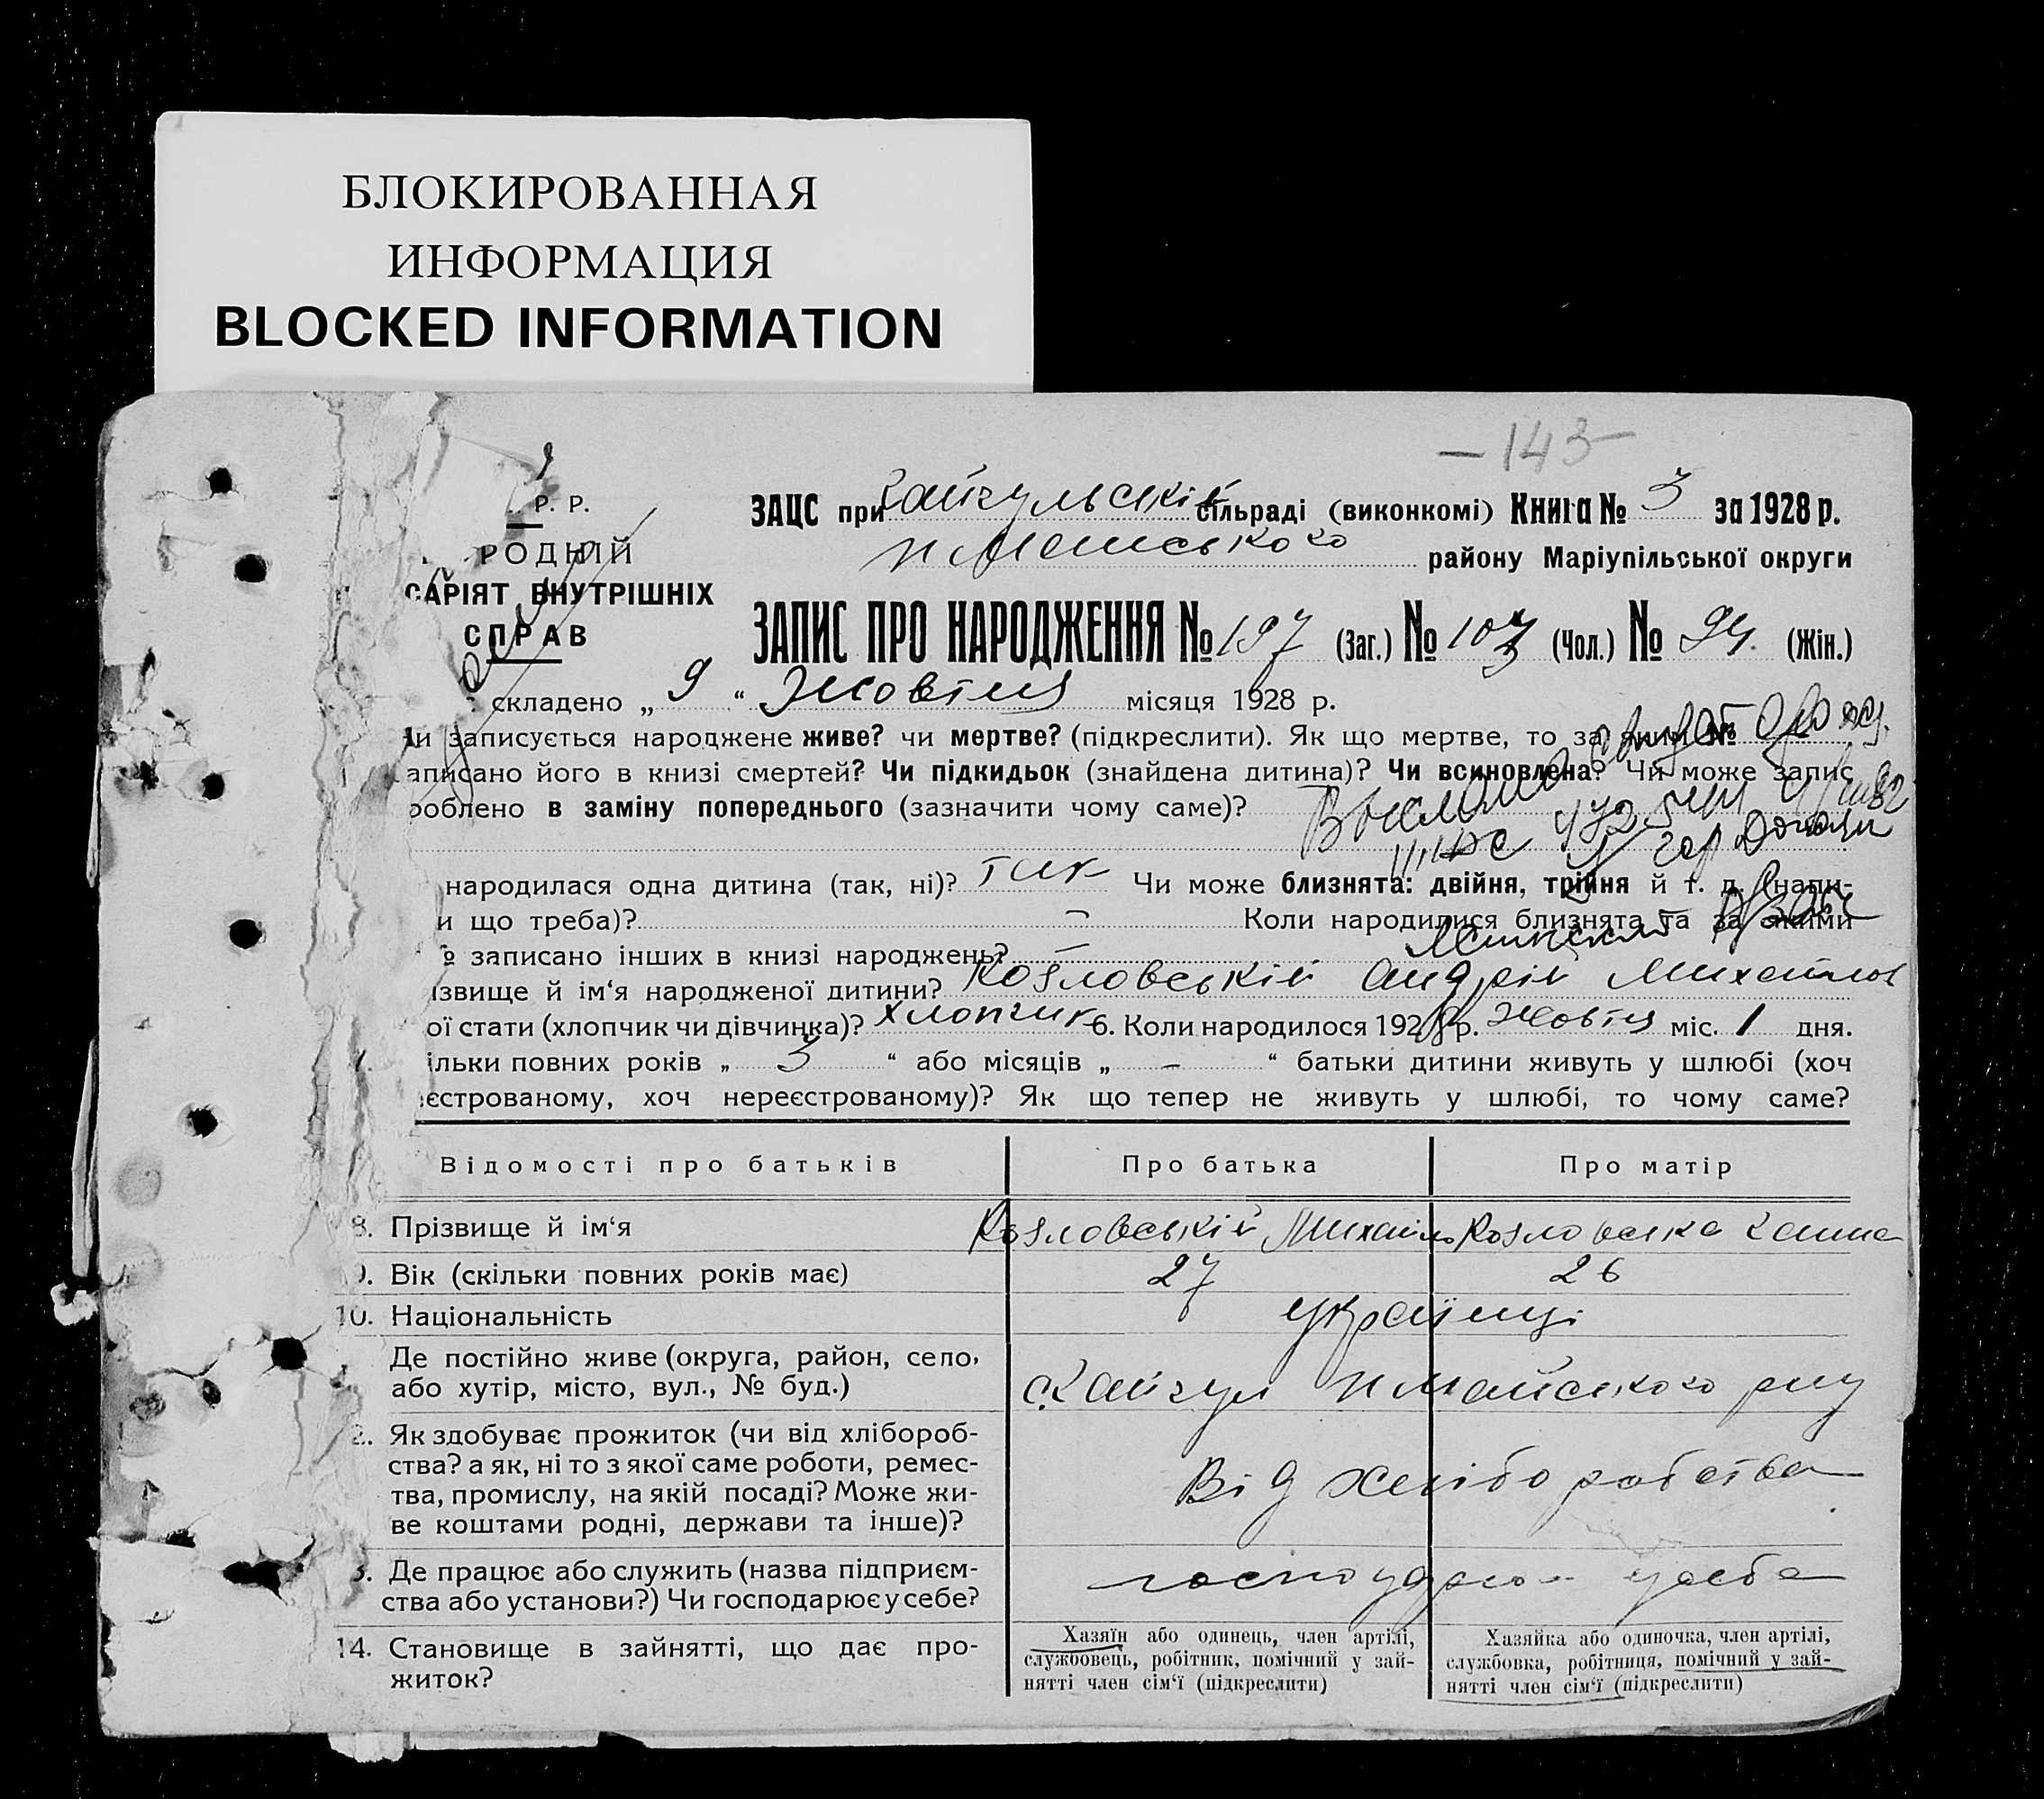 БЛОКИРОВАННАЯ
ИНФОРМАЦИЯ
BLOCKED INFORMATION
– 143 –
Р. Р.
РОДНІЙ
САРІЯТ ВНУТРІШНІХ
СПРАВ
ЗАЦС при сільраді (виконкомі) Книга № 3 за 1928 р.
району Маріупільської округи
ЗАПИС ПРО НАРОДЖЕННЯ № 197 (Заг.) № 103 (Чол.) № 94. (Жін.)
складено „ 9 “ Жовтня місяця 1928 р.
и записується народжене живе? чи мертве? (підкреслити). Як що мертве, то за яким №
аписано його в книзі смертей? Чи підкидьок (знайдена дитина)? Чи всиновлена? Чи може запис
роблено в заміну попереднього (зазначити чому саме)?
народилася одна дитина (так, ні)? так Чи може близнята: двійня, трійня й т. д. (напи-
и що треба)? – Коли народилися близнята та за якими
№ записано інших в книзі народжень? –
ізвище й ім‘я народженої дитини? Козловський Андрій Михайлов
ої стати (хлопчик чи дівчинка)? хлопчик 6. Коли народилося 1928 р. Жовтня міс. 1 дня.
ільки повних років „ 3 “ або місяців „ – “ батьки дитини живуть у шлюбі (хоч
єстрованому, хоч нереєстрованому)? Як що тепер не живуть у шлюбі, то чому саме?
Відомості про батьків Про батька Про матір
8. Прізвище й ім‘я Козловський Михайло Козловська Ганна
9. Вік (скільки повних років має) 27 26
10. Національність українці
Де постійно живе (округа, район, село,
або хутір, місто, вул., № буд.)
2. Як здобуває прожиток (чи від хлібороб-
ства? а як, ні то з якої саме роботи, ремес-
тва, промислу, на якій посаді? Може жи-
ве коштами родні, держави та інше)?
Від хліборобства
3. Де працює або служить (назва підприєм-
ства або установи?) Чи господарює у себе?
14. Становище в зайнятті, що дає про-
житок?
Хазяїн або одинець, член артілі,
службовець, робітник, помічний у зай-
нятті член сім‘ї (підкреслити)
Хазяйка або одиночка, член артілі,
службовка, робітниця, помічний у зай-
нятті член сім‘ї (підкреслити)